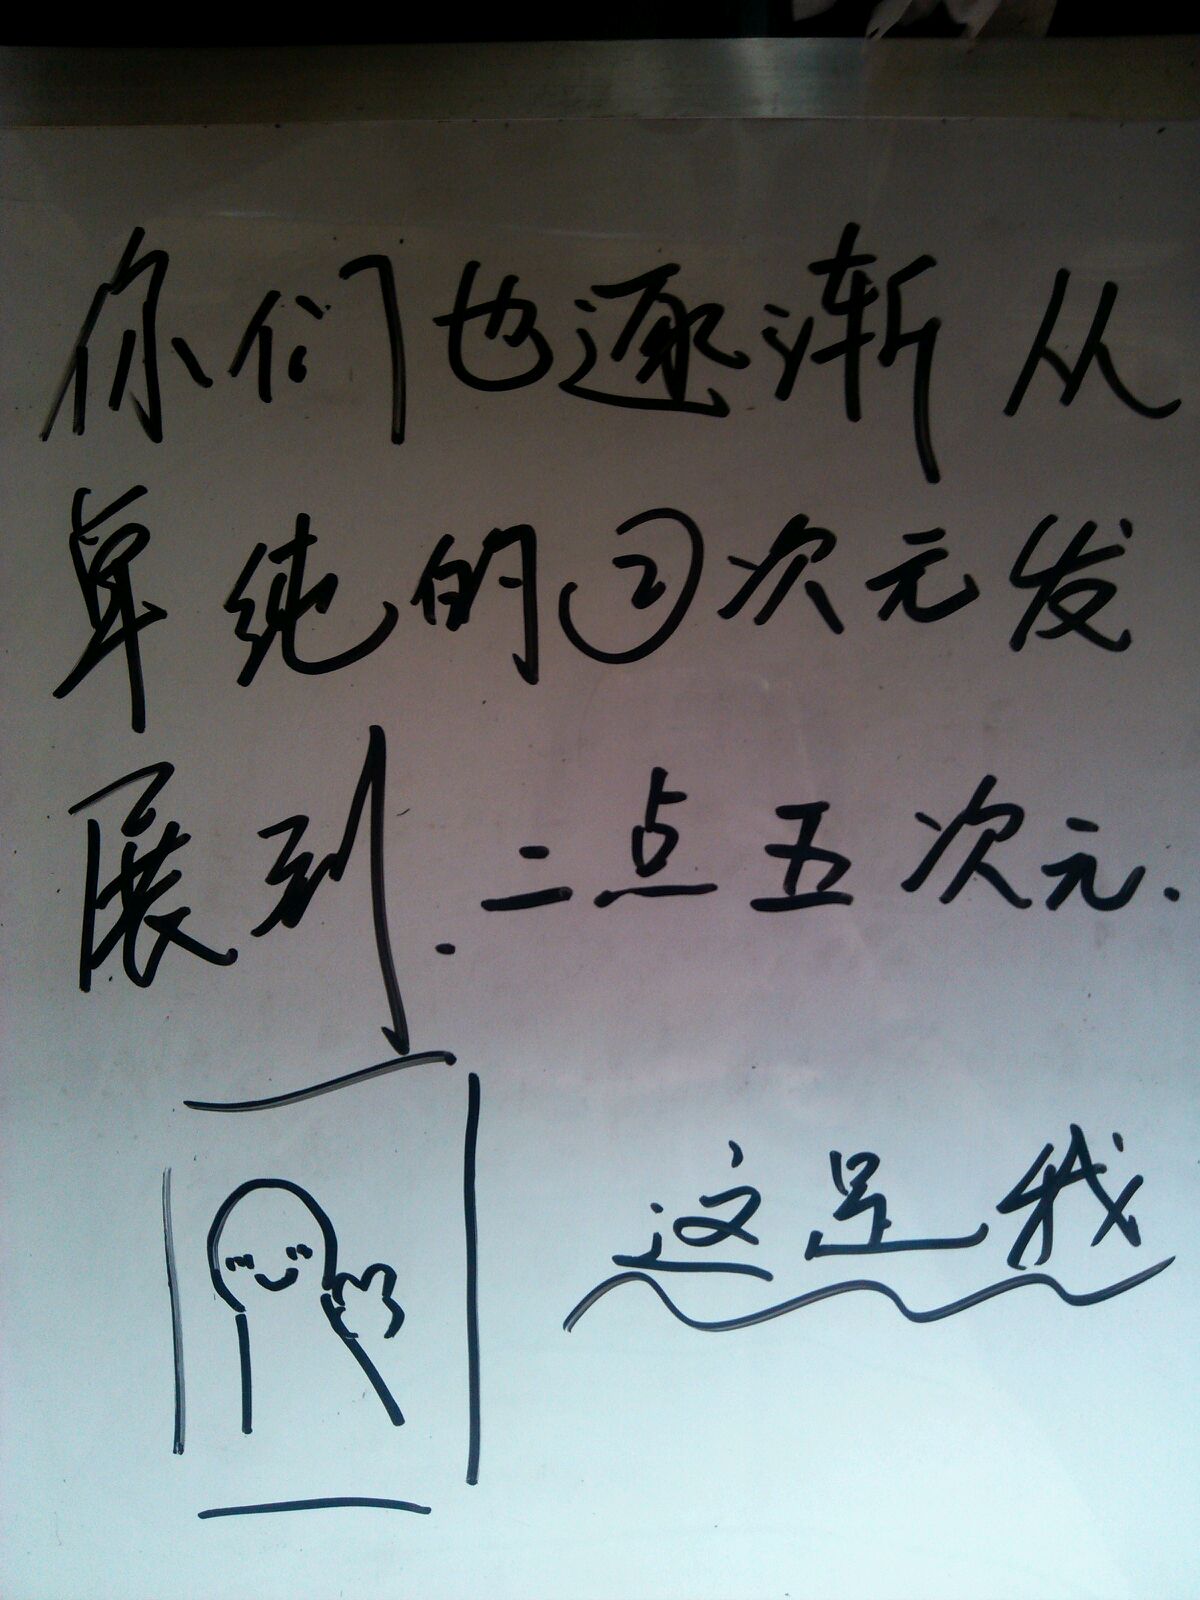 你们也逐渐从
单纯的②次元发
展到.二点五次元.
这是我